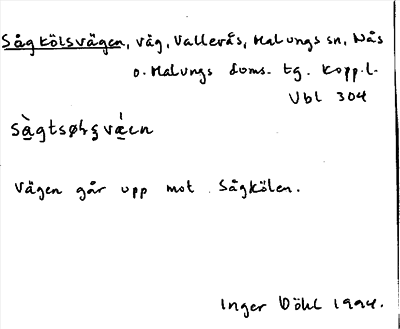 Sågkölsvägen, väg, Vallerås, Malungs sn, Nås
o. Malungs doms. tg. Kopp.l.
Vbl 304
sàgtsøɫʂvǽɩn
Vägen går upp mot Sågkölen.
Inger Döhl 1994.